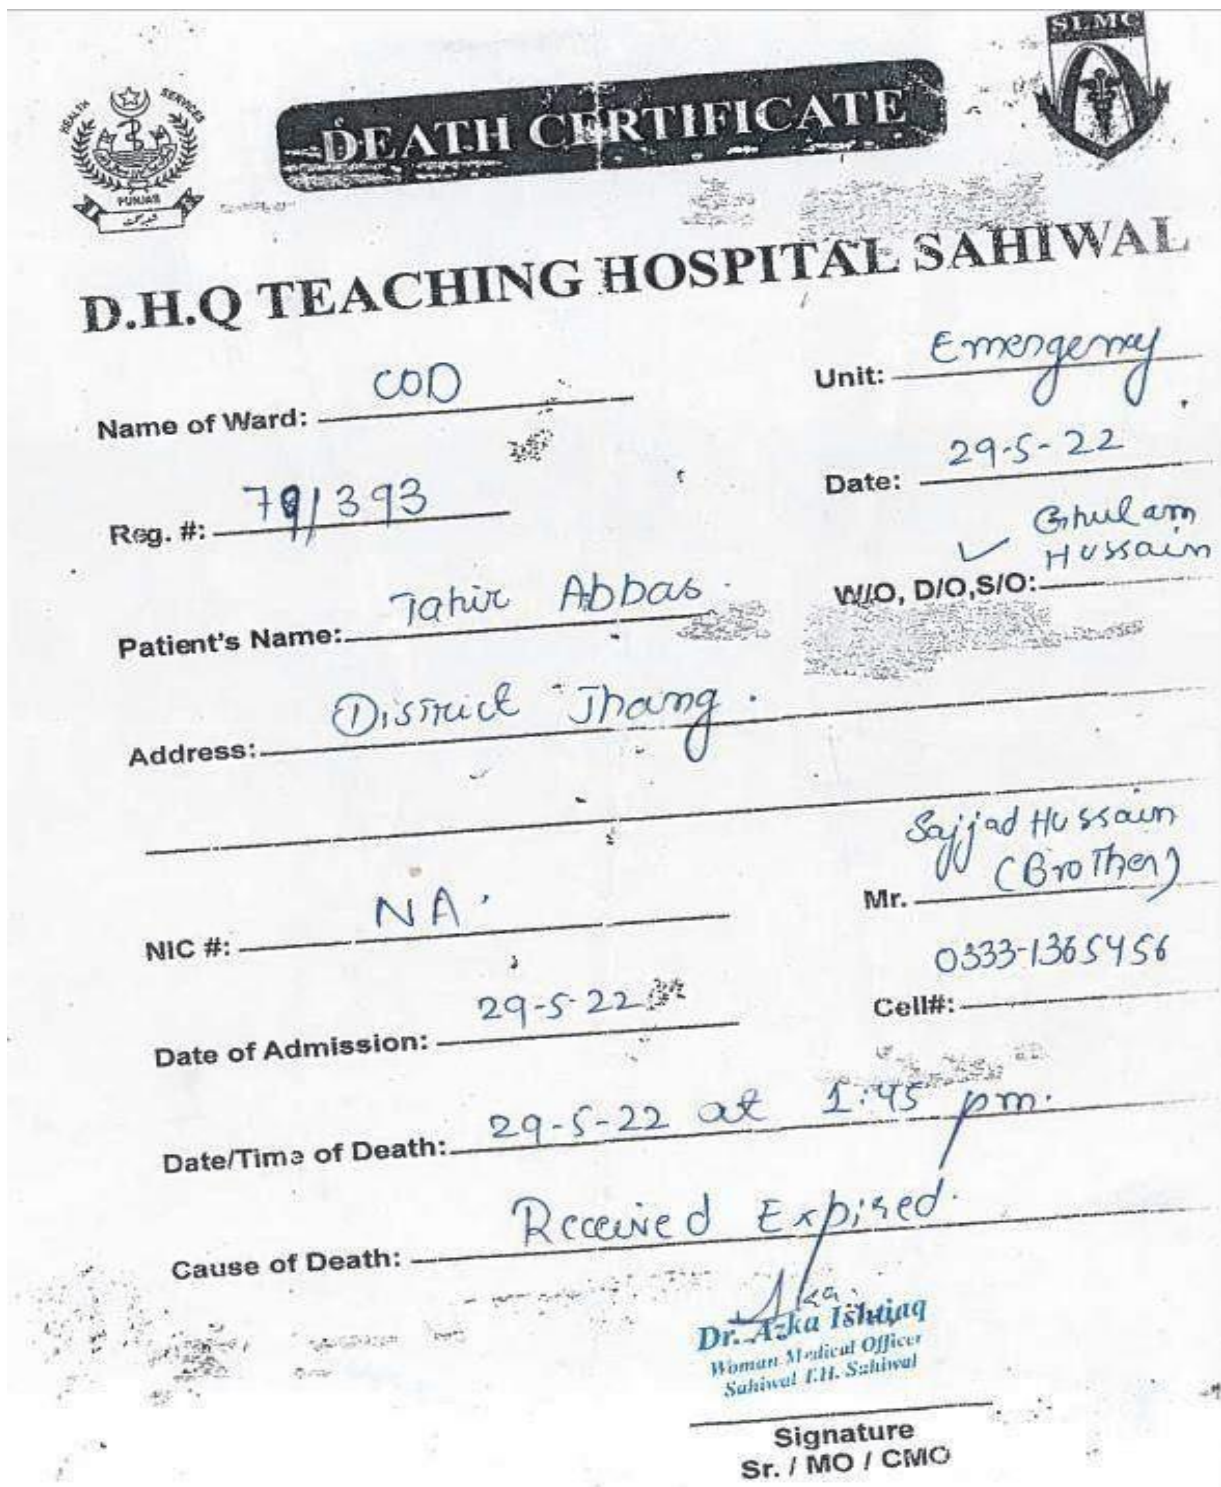 SLMC
HEALTH SERVICES
PUNJAB
DEATH CERTIFICATE
D.H.Q TEACHING HOSPITAL SAHIWAL
Name of Ward: COD Unit: Emergency
Reg. #: 79/393 Date: 29-5-22
Patient's Name: Tahir Abbas. W/O, D/O,S/O: ✓ Ghulam Hussain
Address: District Jhang.
NIC #: NA. Mr. Sajjad Hussain (Brother)
Date of Admission: 29-5-22 Cell#: 0333-1365456
Date/Time of Death: 29-5-22 at 1:45 pm.
Cause of Death: Received Expired.
Dr. Azka Ishtiaq
Woman Medical Officer
Sahiwal T.H. Sahiwal
Signature
Sr. / MO / CMO